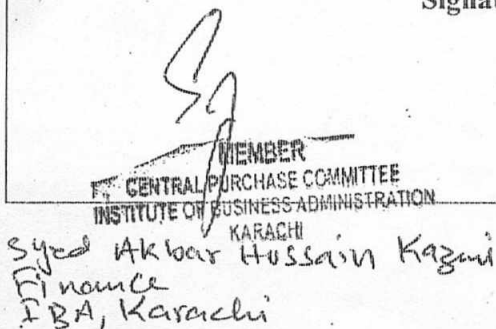 Signat
MEMBER
CENTRAL PURCHASE COMMITTEE
INSTITUTE OF BUSINESS ADMINISTRATION
KARACHI
Syed Akbar Hussain Kazmi
Finance
IBA, Karachi